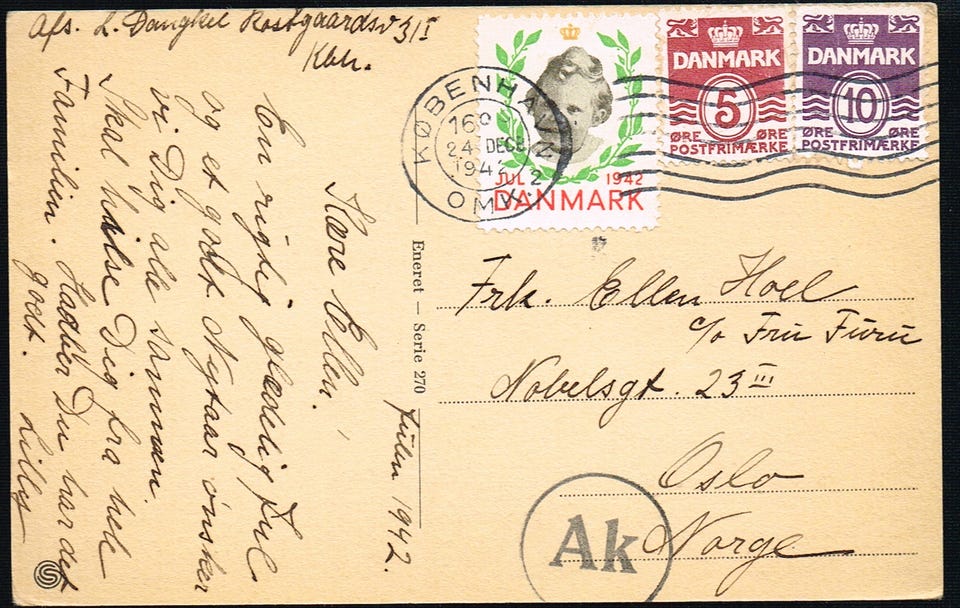 Afs. L. Dangkel Rostgaardsv 3 I
Kbh.
Julen 1942.
Kære Ellen.
En rigtig glædelig Jul
og et godt Nytaar ønsker
vi Dig alle sammen.
Skal hilse Dig fra hele
Familien. Haaber Du har det
godt. Lilly
Eneret — Serie 270
KØBENHAVN
OMK. 2
24 DECB
1942
JUL 1942
DANMARK
DANMARK
5
ØRE ØRE
POSTFRIMÆRKE
DANMARK
10
ØRE ØRE
POSTFRIMÆRKE
Frk. Ellen Hoel
c/o Fru Furu
Nobelsgt. 23 III
Oslo
Norge
Ak